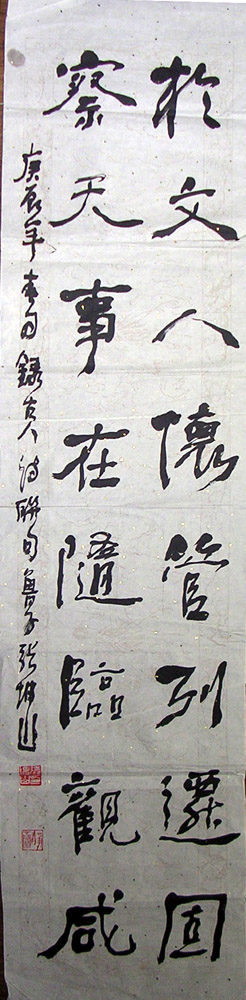 於文人懷管列遷固
察天事在隨臨觀咸
庚辰年春錄古人詩聯句